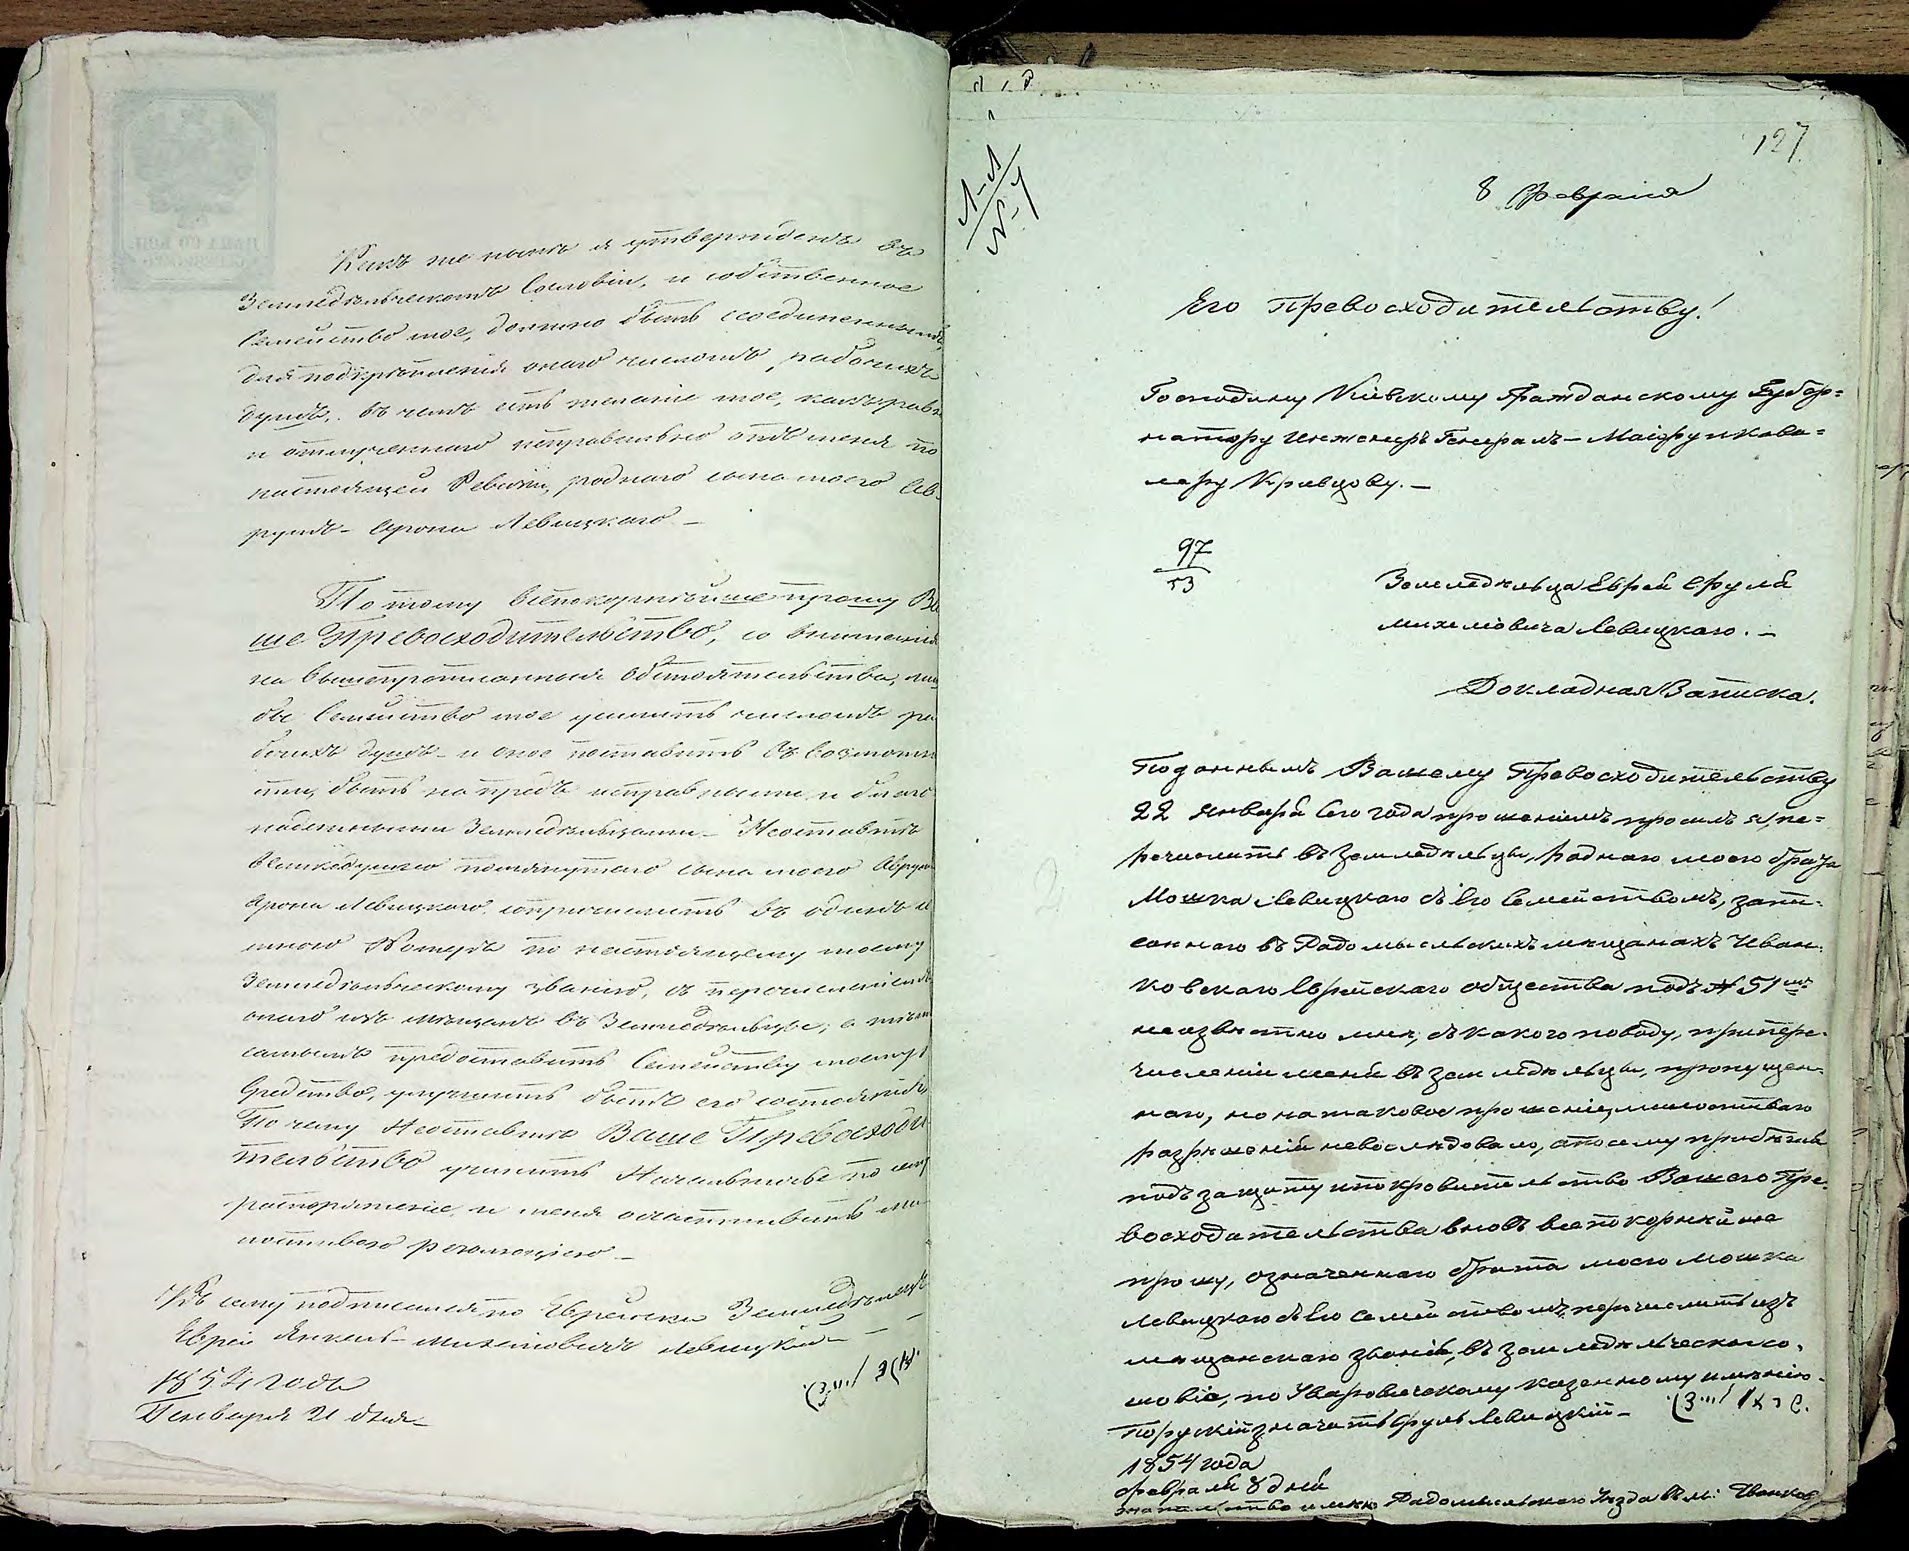 Какъ же нынѣ я утвержденъ въ
Земледѣльческомъ Сословіи, и собственное
Семейство мое, должно быть соединеннымъ,
для подкрѣпленія онаго числомъ рабочихъ
душъ, въ чемъ есть желаніе мое, какъ равно
и отлученнаго неправильно отъ меня по
настоящей Ревизіи, роднаго сына моего Ав-
румъ-Арона Левицкаго —
По тому всепокорнѣйше прошу Ва
ше Превосходительство, со вниманія
на вышепрописанныя обстоятельства,
бы Семейство мое усилить числомъ ра
бочихъ душъ и оное поставить въ возможн
быть на предъ исправными и благо
надежными Земледѣльцами — Неоставить
великодушно помянутаго сына моего Аврум
Арона Левицкаго, сопричислить въ одинъ
Номеръ по настоящему моему
Земледѣльческому званію, съ перечисленіемъ
онаго изъ мѣщанъ въ Земледѣльцы, а тѣмъ
самымъ предоставить Семейству моему
Средство, улучшить бытъ его состоянія
По чему Неоставьте Ваше Превосходи
тельство учинить Начальничье по сему
распоряженіе, и меня осчастливить ми
лостивою резолюціею —
Къ сему подписался по Еврейски Земледѣлецъ
Еврей Янкель Михелевичъ Левицкій —
1854 года
Генваря 21 дня
127.
8 Февраля
Его Превосходительству!
Господину Кіевскому Гражданскому Губер=
натору Инженеръ Генералъ-Маіору и Кава=
леру Кривцову. —
97
53
Земледѣльца Еврея Сруля
Михелевича Левицкаго. —
Докладная Записка.
Поданнымъ Вашему Превосходительству
22 Января сего года прошеніемъ просилъ я, пе=
речислить въ земледѣльцы, роднаго моего брата
Мошка Левицкаго съ Его Семействомъ, запи-
саннаго въ Радомысльскихъ мѣщанахъ Иван-
ковскаго Еврейскаго общества подъ № 51мъ
неизвѣстно мнѣ, съ какого поводу, при пере-
численіи меня въ земледѣльцы, пропущен-
наго, но на таковое прошеніе, милостиваго
разрѣшенія невоследовало, а по сему прибѣгая
подъ защиту и покровительство Вашего Пре-
восходительства вновь всепокорнѣйше
прошу, означеннаго брата моего Мошка
Левицкаго съ Его Семействомъ, перечислить изъ
мѣщанскаго званія, въ земледѣльческое со-
словіе, по Уваровичскому казенному имѣнію.
По руский значитъ Сруль Левицкій —
1854 года
февраля 8 дня
жительство имѣю Радомысльскаго Уѣзда въ м: Иванков